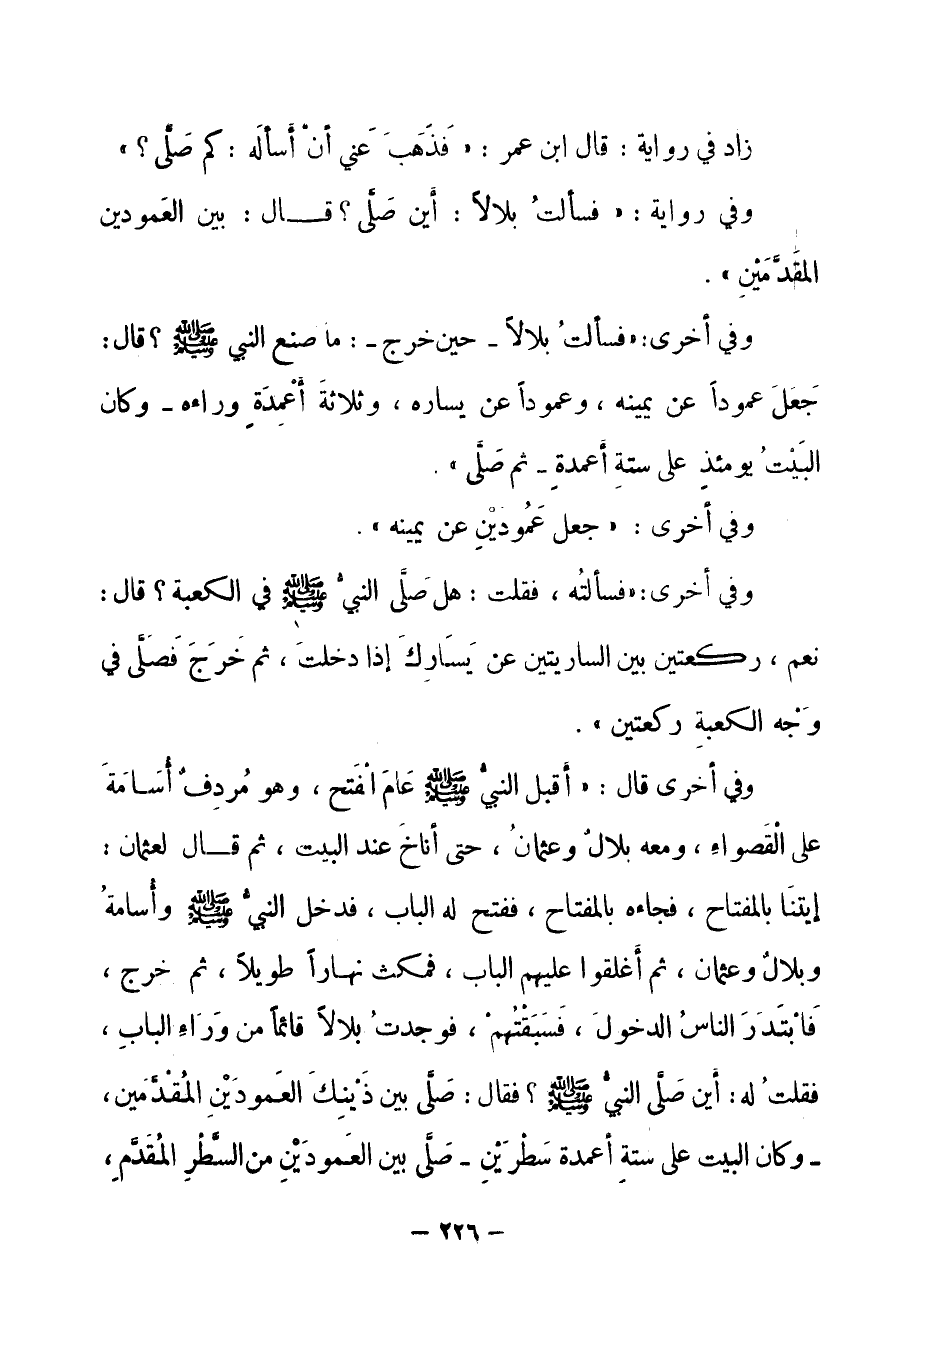 زاد في رواية : قال ابن عمر : « فَذَهَبَ عَني أنْ أَسألَه : كم صَلَّى ؟ »
وفي رواية : « فسألتُ بلالاً : أين صَلَّى ؟ قـــال : بين العَمودين
المقَدَّمَيْنِ » .
وفي أخرى : « فسألتُ بلالاً ـ حين خرج ـ : ما صنع النبي ﷺ ؟ قال :
جَعَلَ عموداً عن يمينه ، وعموداً عن يساره ، وثلاثةَ أَعْمِدَةٍ وراءه ـ وكان
البَيْتُ يومئذٍ على ستةِ أعمدةٍ ـ ثم صَلَّى » .
وفي أخرى : « جعل عَمُودَيْنِ عن يمينه » .
وفي أخرى : « فسألتُه ، فقلت : هل صَلَّى النبيُّ ﷺ في الكعبة ؟ قال :
نعم ، ركعتين بين الساريتين عن يَسَارِكَ إذا دخلتَ ، ثم خَرَجَ فَصَلَّى في
وَجْه الكعبةِ ركعتين » .
وفي أخرى قال : « أقبل النبيُّ ﷺ عَامَ اْفَتح ، وهو مُردِفٌ أُسَامَةَ
على الْقَصواءِ ، ومعه بلالٌ وعثمانُ ، حتى أناخَ عند البيت ، ثم قـــال لعثمان :
إيتنَا بالمفتاح ، فجاءه بالمفتاح ، ففتح له الباب ، فدخل النبيُّ ﷺ وأُسامةُ
وبلالٌ وعثمان ، ثم أَغلقوا عليهم الباب ، فمكث نهاراً طويلاً ، ثم خرج ،
فَابْتَدَرَ الناسُ الدخولَ ، فَسَبَقْتُهمْ ، فوجدتُ بلالاً قائماً من وَرَاءِ البابِ ،
فقلتُ له : أين صَلَّى النبيُّ ﷺ ؟ فقال : صَلَّى بين ذَيْنِكَ العَمودَيْنِ المُقْدَّمَين ،
ـ وكان البيت على ستةِ أعمدة سَطْرَيْنِ ـ صَلَّى بين العَمودَيْنِ من السَّطْرِ المُقَدَّمِ ،
– ٢٢٦ –